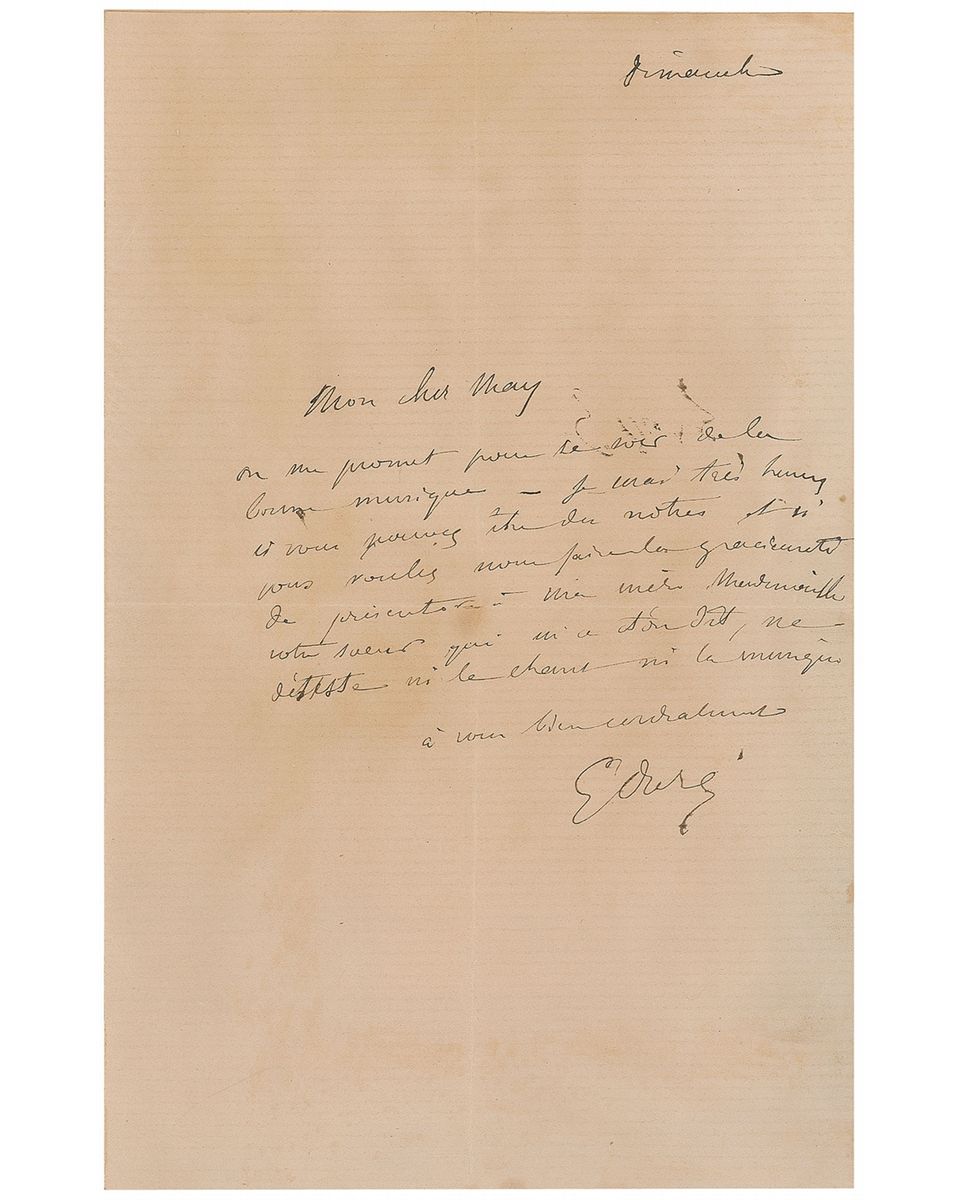 Dimanche
Mon cher May
on me promet pour ce soir de la
bonne musique – je serais très heureux
si vous pouvez être des nôtres et si
vous voulez nous faire la gracieuseté
de présenter à ma mère Mademoiselle
votre soeur qui m'a t'on dit, ne
déteste ni le chant ni la musique
à vous bien cordialement
G Doré